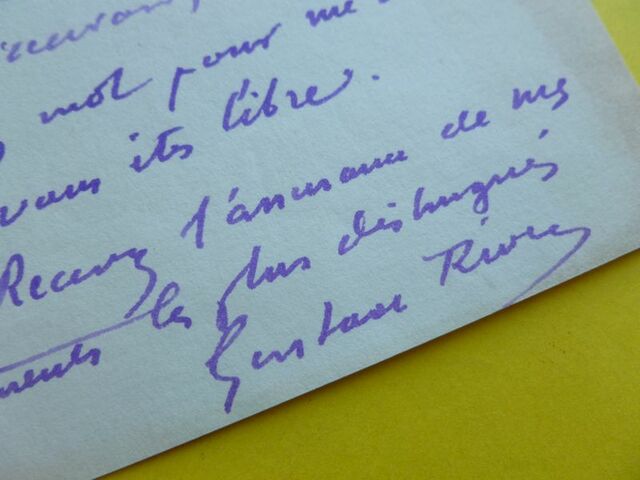 mot pour me
vous êtes libre.
Recevez l'assurance de mes
les plus distingués
Gustave Rivet